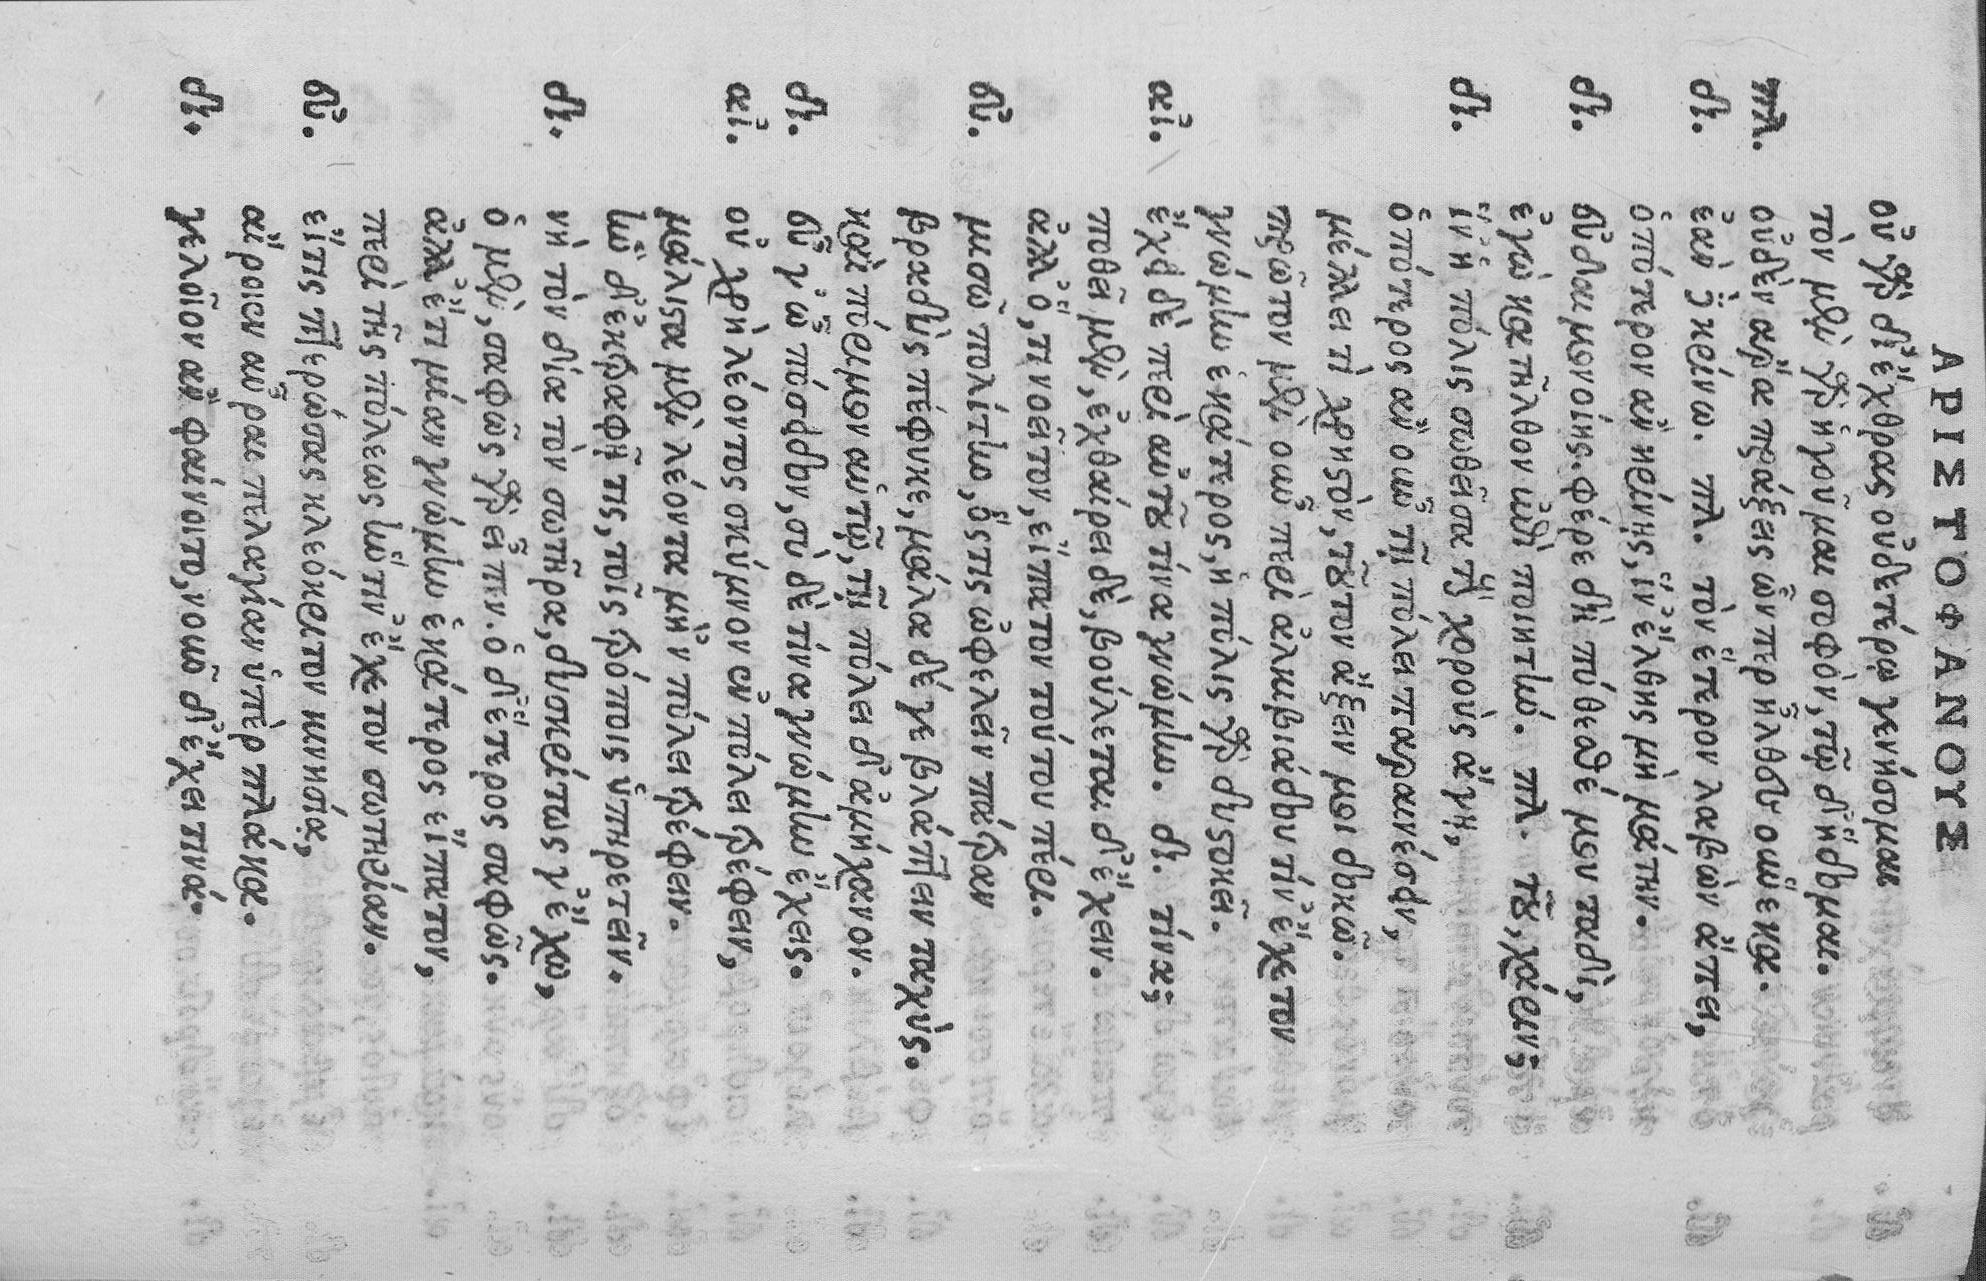 ΑΡΙΣΤΟΦΑΝΟΥΣ
οὐ γὰρ δι' ἔχθρας οὐδετέρῳ γενήσομαι
τὸν μὲν γὰρ ἡγοῦμαι σοφόν, τῷ δ' ἥδομαι.
πλ. οὐδὲν ἄρα πράξεις ὧν περ ἦλθες οὕνεκα.
δι. ἐὰν δὲ κρίνω. πλ. τὸν ἕτερον λαβὼν ἄπει,
ὁπότερον ἂν κρίνῃς, ἵν' ἔλθῃς μὴ μάτην.
δι. εὐδαιμονοίης. φέρε δὴ πύθεσθέ μου ταδί,
ἐγὼ κατῆλθον ἐπὶ ποιητήν. πλ. τοῦ, χάριν;
δι. ἵν' ἡ πόλις σωθεῖσα τοὺς χοροὺς ἄγῃ,
ὁπότερος ἂν οὖν τῇ πόλει παραινέσειν,
μέλλει τὶ χρηστόν, τοῦτον ἄξειν μοι δοκῶ.
πρῶτον μὲν οὖν περὶ ἀλκιβιάδου τίν' ἔχετον
γνώμην ἑκάτερος, ἡ πόλις γὰρ δυστοκεῖ.
αἰ. ἔχει δὲ περὶ αὐτοῦ τίνα γνώμην. δι. τίνα;
ποθεῖ μὲν, ἐχθαίρει δὲ, βούλεται δ' ἔχειν.
ἀλλ' ὅ, τι νοεῖτον, εἴπατον τούτου πέρι.
εὐ. μισῶ πολίτην, ὅστις ὠφελεῖν πάτραν
βραδὺς πέφυκε, μάλα δέ γε βλάπτειν ταχύς.
καὶ πόριμον αὑτῷ, τῇ πόλει δ' ἀμήχανον.
δι. εὖ γ' ὦ πόσειδον, σὺ δὲ τίνα γνώμην ἔχεις.
αἰ. οὐ χρὴ λέοντος σκύμνον ἐν πόλει τρέφειν,
μάλιστα μὲν λέοντα μὴ 'ν πόλει τρέφειν.
ἢν δ' ἐκτραφῇ τις, τοῖς τρόποις ὑπηρετεῖν.
δι. νὴ τὸν δία τὸν σωτῆρα, δυσκρίτως γ' ἔχω,
ὁ μὲν, σαφῶς γὰρ εἶπεν. ὁ δ' ἕτερος σαφῶς.
ἀλλ' ἔτι μίαν γνώμην ἑκάτερος εἴπατον,
περὶ τῆς πόλεως ἥντιν' ἔχετον σωτηρίαν.
εὐ. εἴ τις πτερώσας κλεόκριτον κινησίᾳ,
αἴροιεν αὖραι πελαγίαν ὑπὲρ πλάκα.
δι. γελοῖον ἂν φαίνοιτο, νοῦν δ' ἔχει τινά.